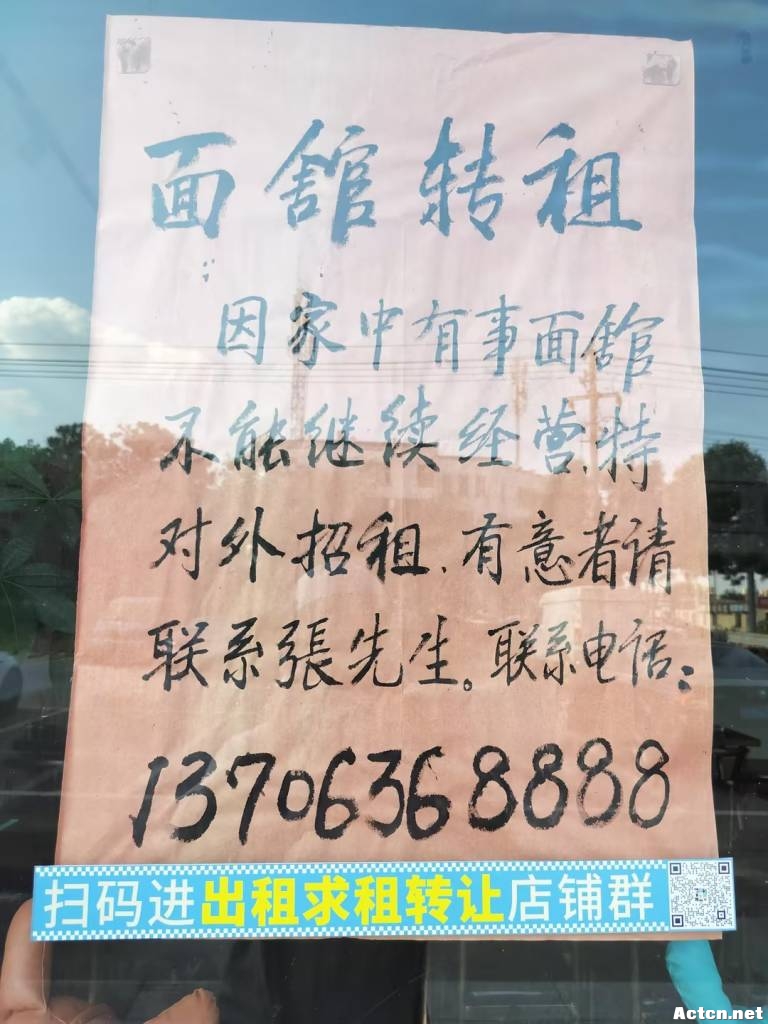 面舘转租
因家中有事面舘
不能继续经营,特
对外招租,有意者请
联系張先生。联系电话:
13706368888
扫码进出租求租转让店铺群
Actcn.net